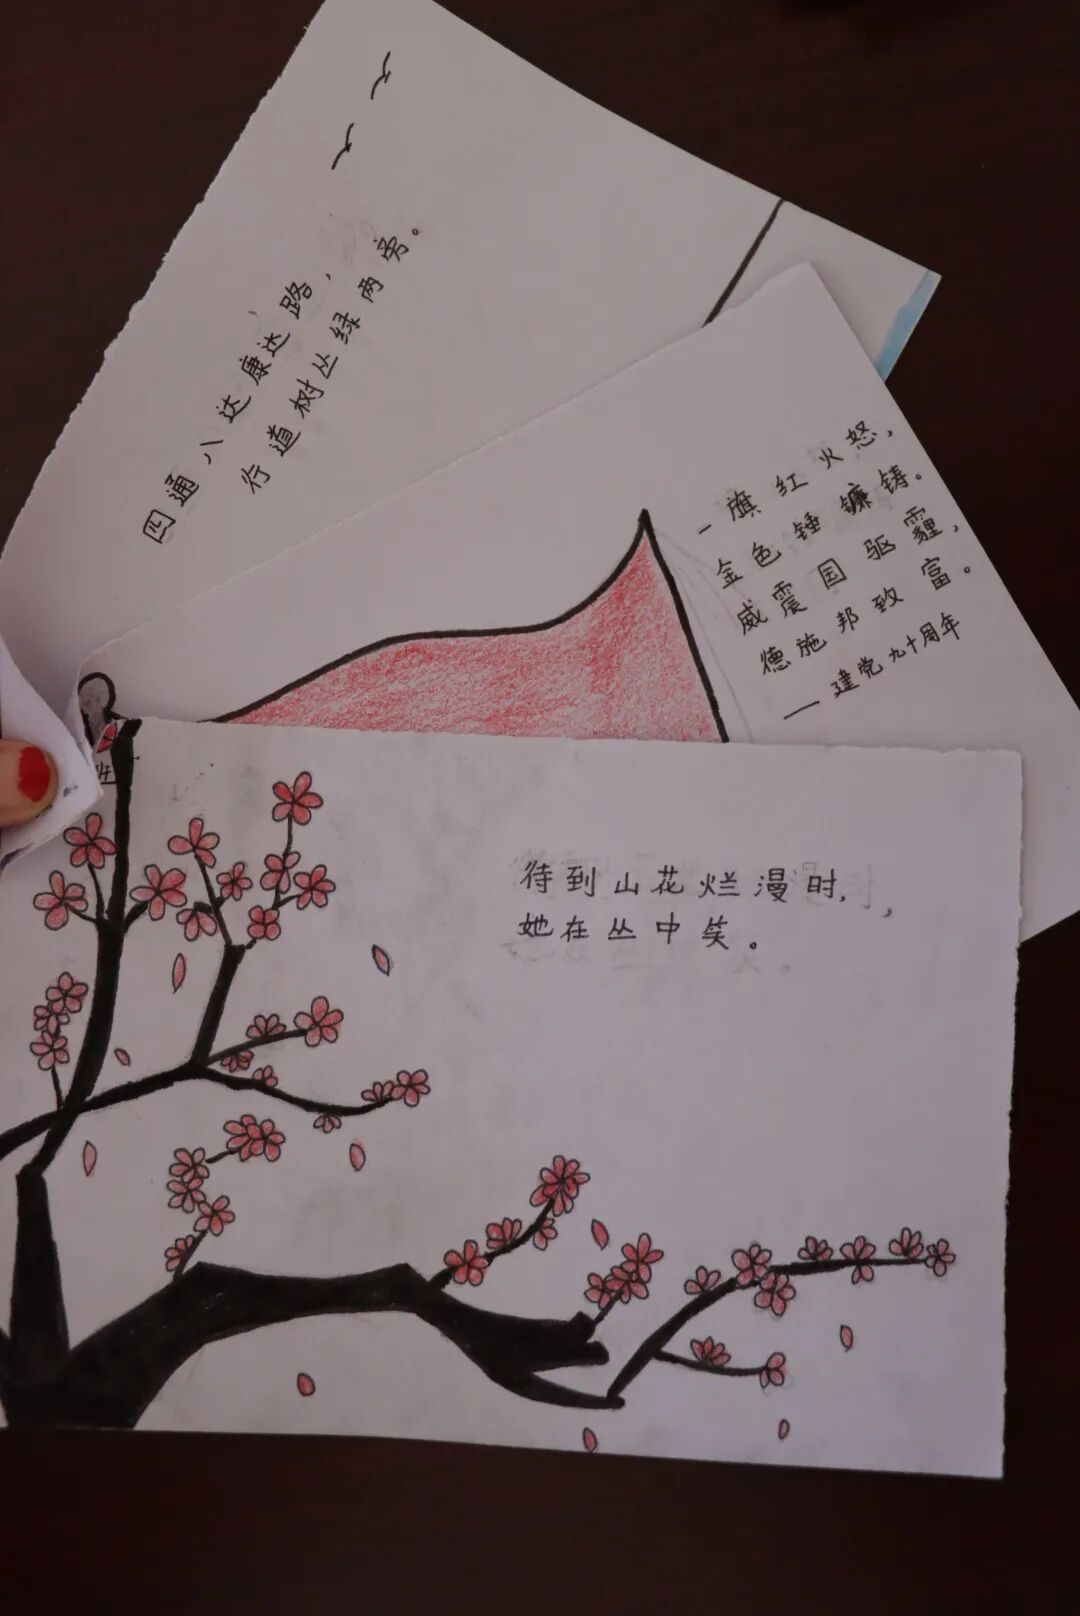 四通八达康达路，
行道树丛绿两旁。
一旗红火怒，
金色锤镰铸。
威震国驱霾，
德施邦致富。
——建党九十周年
待到山花烂漫时，
她在丛中笑。